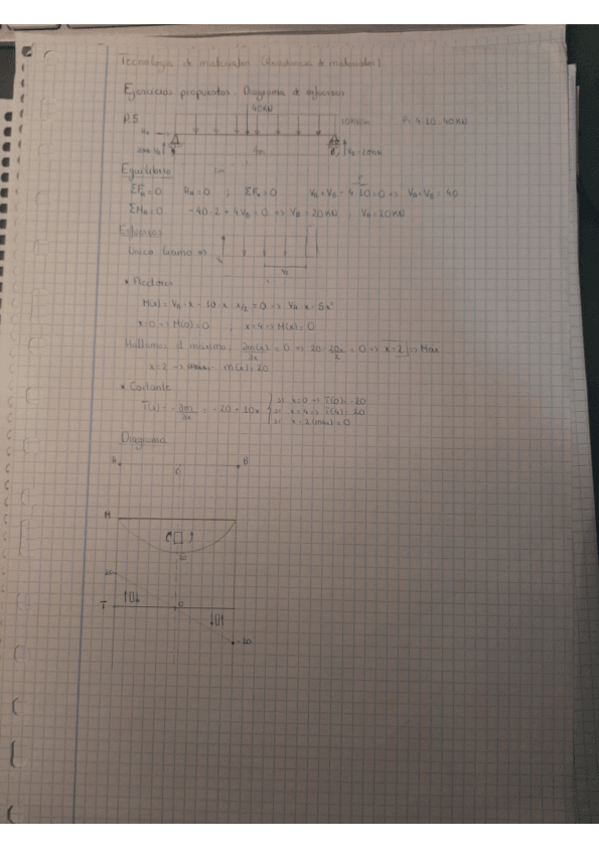 Tecnología de materiales (Resistencia de materiales)
Ejercicios propuestos. Diagrama de esfuerzos
40KN
P.5 10KN/m P: 4·10=40KN
4m
Equilibrio
ΣF =0 H =0 ; ΣF =0 V + V - 4·10=0 => V + V = 40
ΣM =0 -40·2 + 4V =0 => V = 20KN ; V = 20KN
Esfuerzos
Único tramo =>
* Flectores
M(x) = V · x - 10·x·x/2 = 0 => V ·x - 5x²
x=0 => M(0)=0 ; x=4 => M(x)=0
Hallamos el máximo: = 0 => = 0 => x=2 => Max
x=2 => m(x)=20
* Cortante
T(x) = = -20 + 10x x=0 => T(0)= -20
x=4 => T(4)= 20
x=2 (max) = 0
Diagrama
A B
M
20
20
T 0
-20